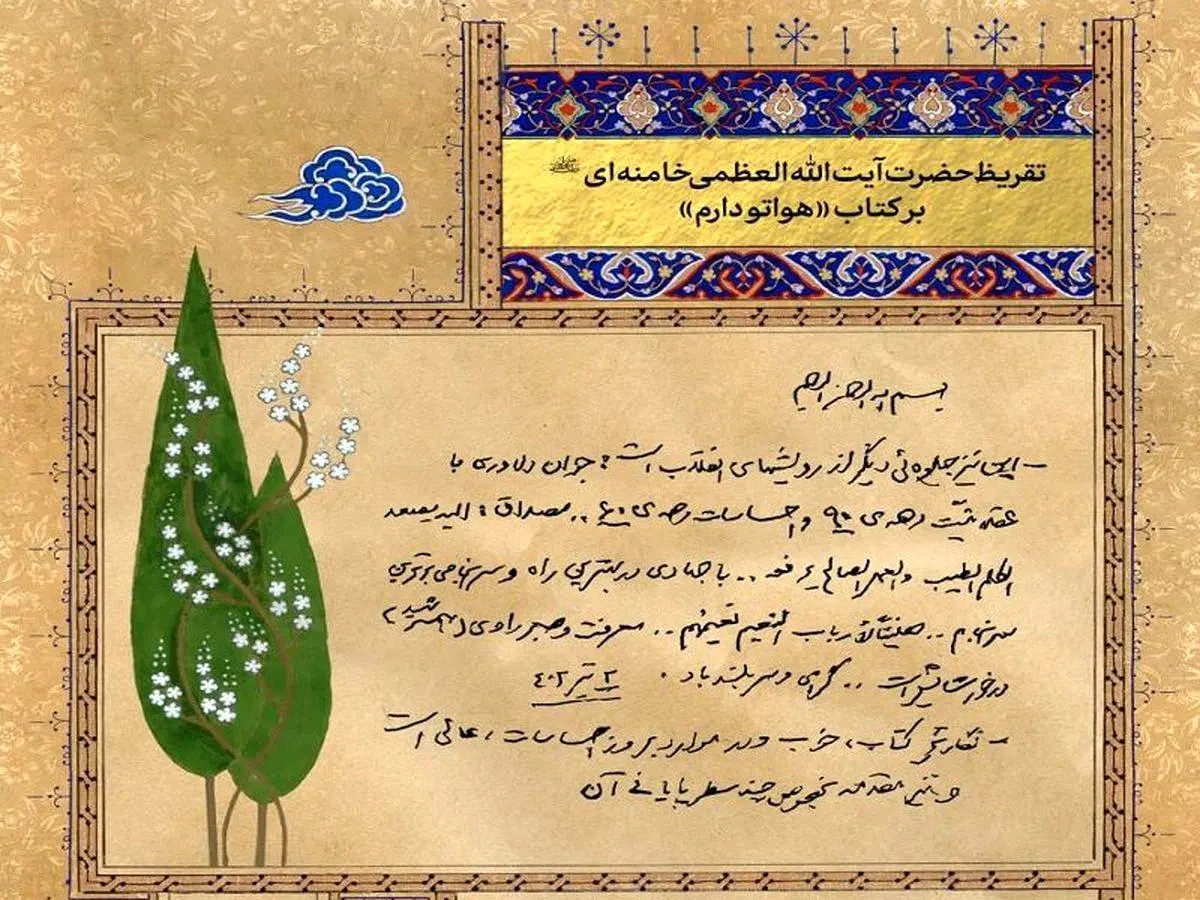 تقریظ حضرت آیت‌الله العظمی خامنه‌ای
بر کتاب «هواتو دارم»
بسم الله الرحمن الرحیم
- این نیز جلوه‌ئی دیگر از رویشهای انقلاب است: جوان دلاوری با
عقلانیّت دهه‌ی ۹۰ و احساسات دهه‌ی ۶۰ .. مصداق: الیه یصعد
الکلم الطیب والعمل الصالح یرفعه .. با جهادی در بهترین راه و سرانجامی برترین
سرانجام .. هنیئاً لأرباب النعیم نعیمهم .. معرفت و صبر راوی (همسر شهید)
در خور ستایش است .. گرامی و سربلند باد . ۲ تیر ۴۰۲
- نگارش کتاب، خوب و در موارد بروز احساسات، عالی است
و نیز مقدمه بخصوص چند سطر پایانی آن